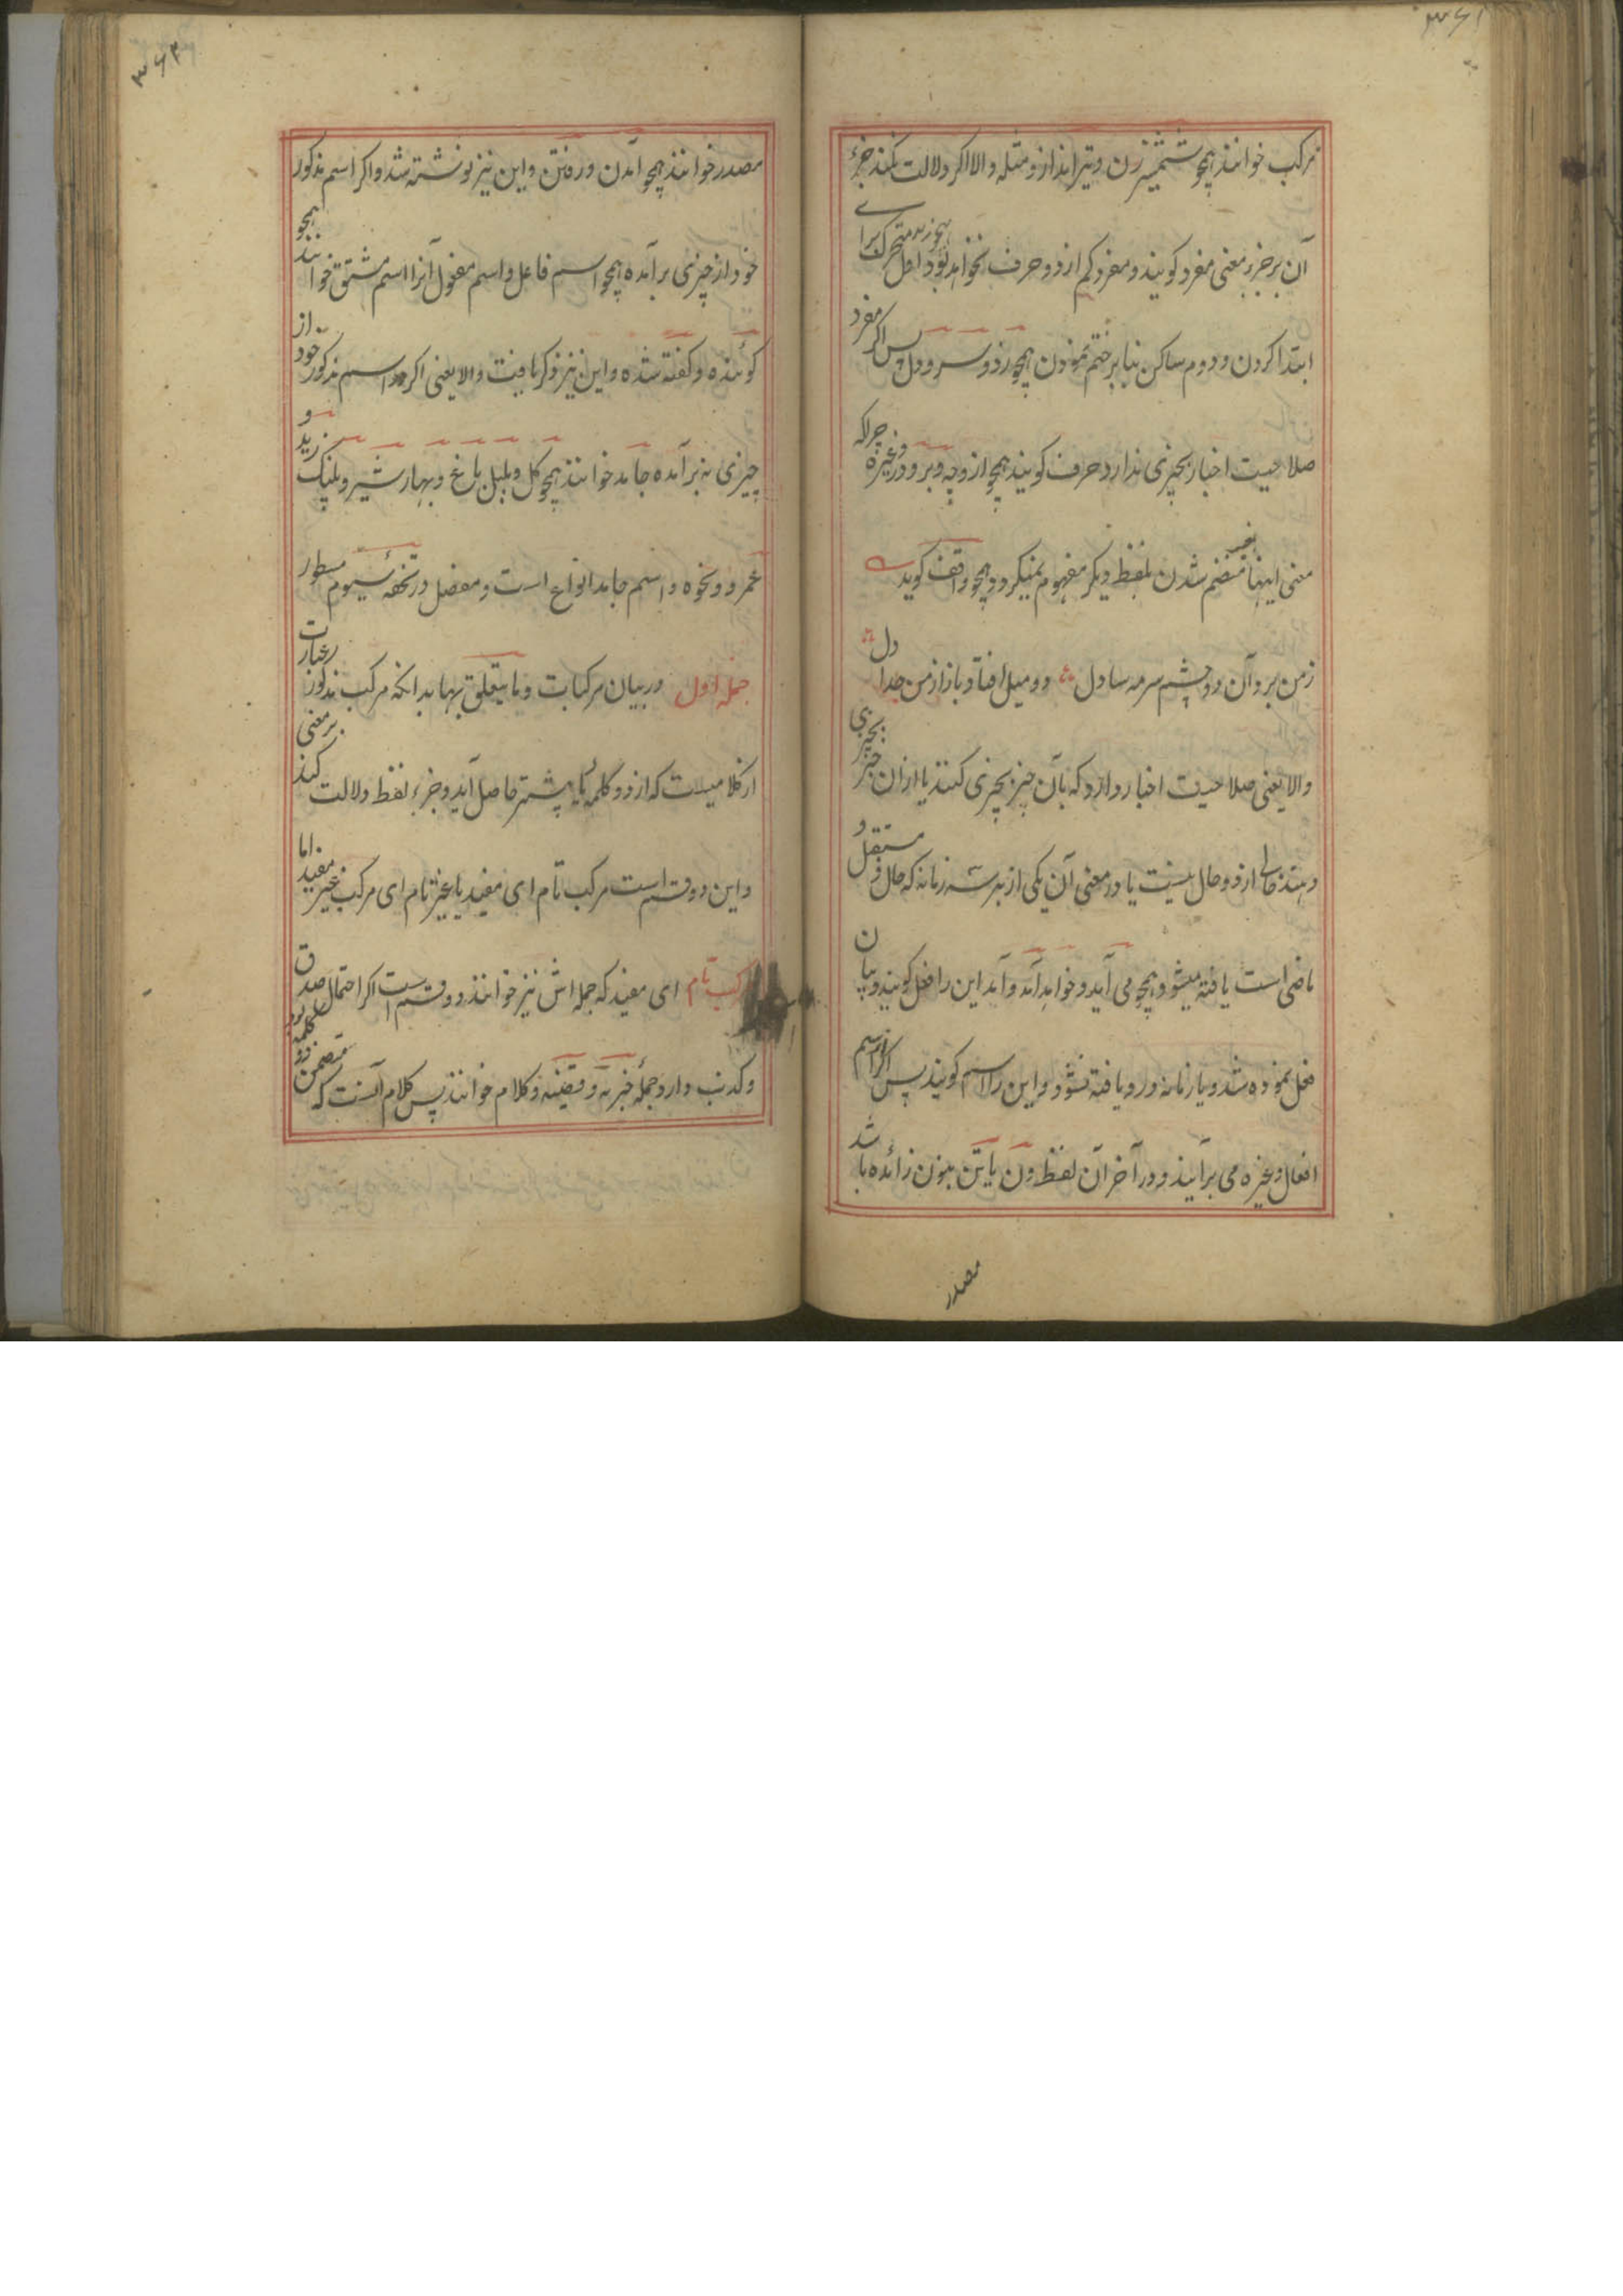 ۳۶۱
مرکب خوانند همچو شمشیر زن و تیر انداز و مثله والا اگر دلالت نکند جزء
آن بر جزء معنی مفرد کویند و مفرد کم از دو حرف نخواهد بود اول متحرک برای
ابتدا کردن و دوم ساکن بنا بر ختم نمودن همچو زد و سر و دل پس اگر مفرد
صلاحیت اخبار بچیزی ندارد حرف کویند همچو از و چه و بر و در و غیره چرا که
معنی اینها بغیر منضم شدن بلفظ دیگر مفهوم نمیگردد همچو واقف کوید
ز من برد آن دو چشم سرمه سا دل دو میل افتاد باز از من جدا دل
والا یعنی صلاحیت اخبار دارد که بآن چیز بچیزی کنند یا ازان خبر بچیزی
دهند خالی از دو حال نیست یا در معنی آن یکی از هر سه زمانه که حال و مستقبل و
ماضی است یافته میشود همچو می آید و خواهد آمد و آمد این را فعل کویند و بیان
فعل نموده شد و یا زمانه درو یافته نشود و این را اسم کویند پس اگر ازاسم
افعال و غیره می برآیند و در آخر آن لفظ دن یا تن بنون زائده باشد
مصدر
۳۶۲
مصدر خوانند همچو آمدن و رفتن و این نیز نوشته شد و اکر اسم مذکور
خود از چیزی برآمده همچو اسم فاعل و اسم مفعول آنرا اسم مشتق خوانند همچو
کوئنده و کفته شده و این نیز ذکر یافت والا یعنی اکر اسم مذکور خود از
چیزی نه برآمده جامد خوانند همچو کل و بلبل باغ و بهار شیر و پلنک زید و
عمرو و نحوه و اسم جامد انواع است و مفصل در تحفهٔ سیوم مسطور
جمله اول در بیان مرکبات و ما یتعلق بها بدانکه مرکب مذکور عبارت
از کلامیست که از دو کلمه یا بیشتر حاصل آید و جزء لفظ دلالت کند بر معنی
و این دو قسم است مرکب تام ای مفید یا غیر تام ای مرکب غیر مفید اما
مرکب تام ای مفید که جمله اش نیز خوانند دو قسم است اکر احتمال صدق
و کذب دارد جملهٔ خبریه و قضیه و کلام خوانند پس کلام آنست که متضمن دو کلمه بود